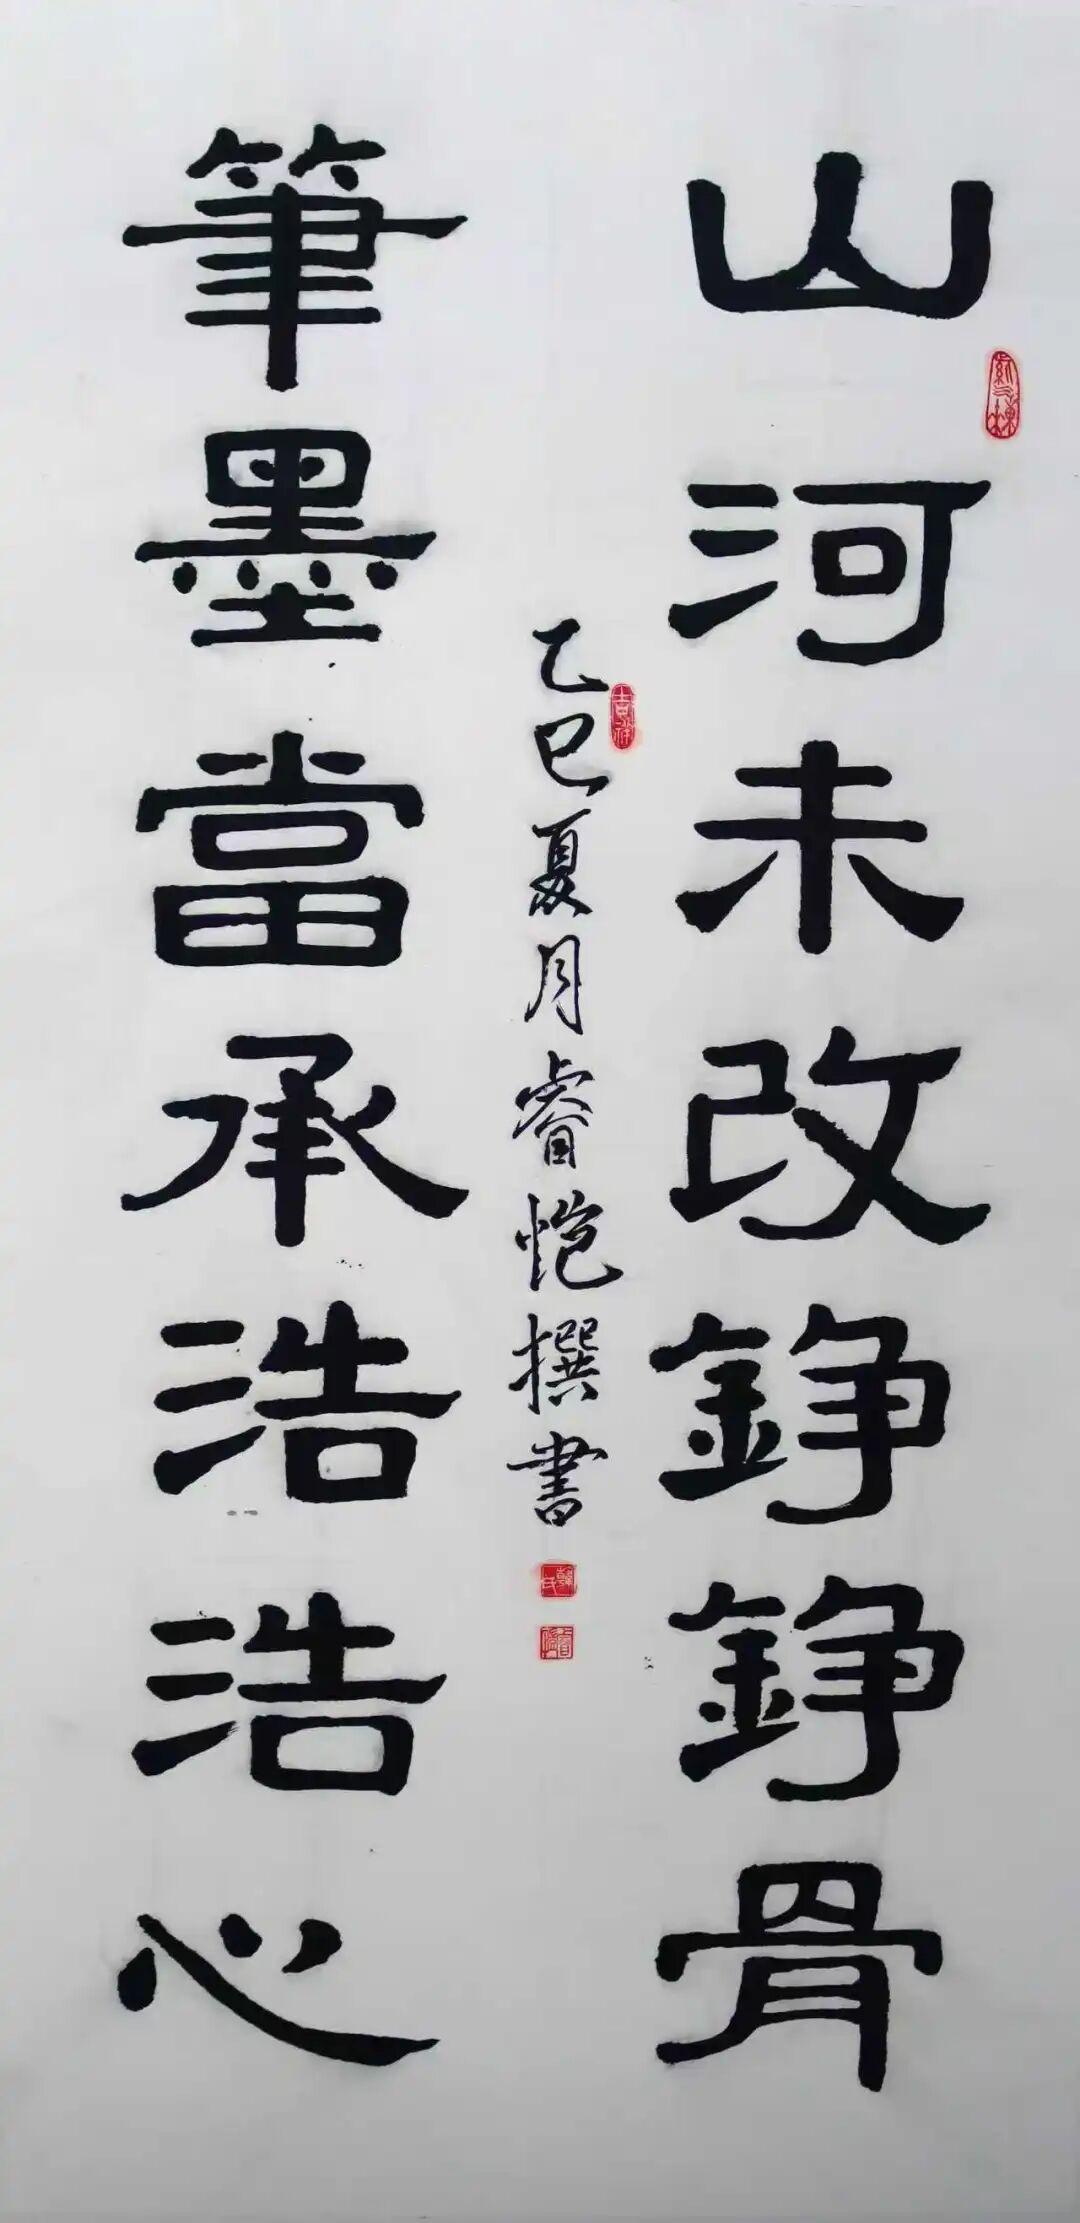 山河未改錚錚骨
筆墨當承浩浩心
乙巳夏月睿恺撰書
吉祥